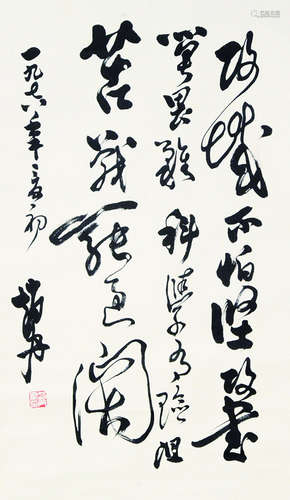 攻城不怕坚攻书
莫畏难科学有险阻
苦战能过关
一九七八年之初
赵丹